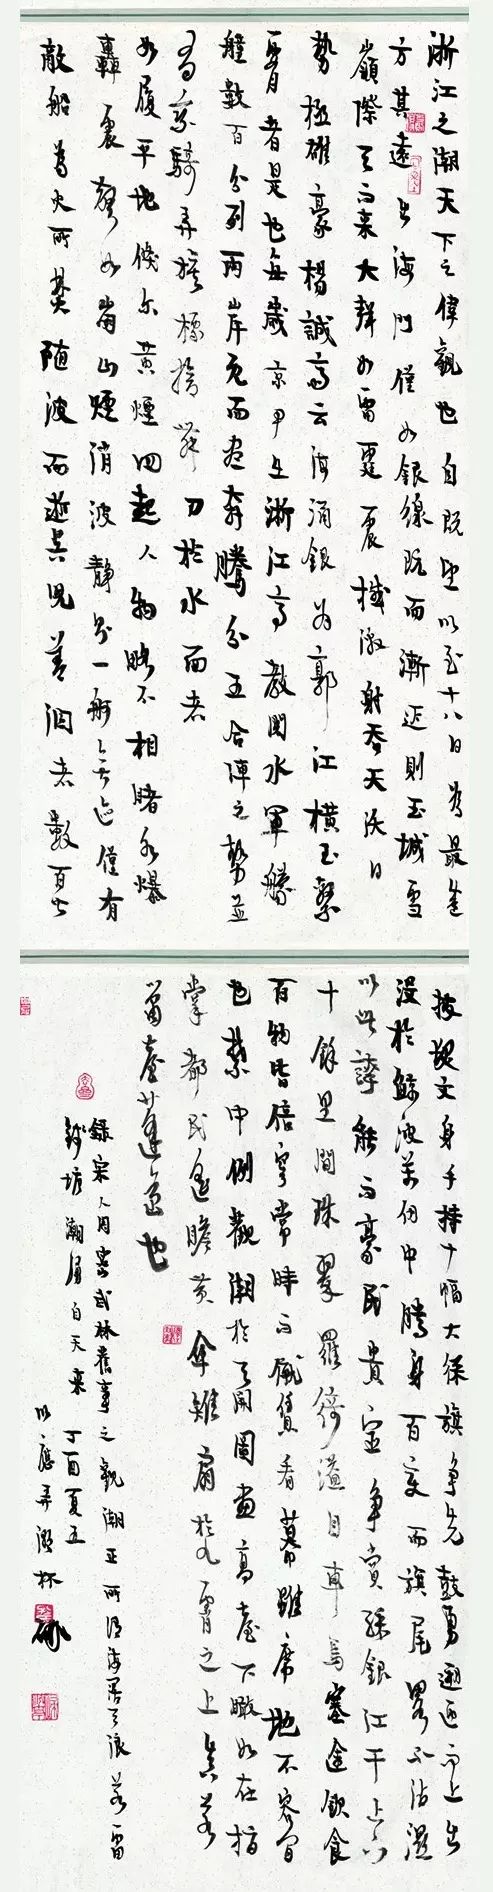 浙江之潮天下之偉觀也自既望以至十八日為最盛
方其遠出海門僅如銀線既而漸近則玉城雪
嶺際天而來大聲如雷霆震撼激射吞天沃日
勢極雄豪楊誠齋云海湧銀為郭江橫玉繫
腰者是也每歲京尹出浙江亭教閱水軍艨
艟數百分列兩岸既而盡奔騰分五合陣之勢並
有乘騎弄旗標槍舞刀於水面者
如履平地倏爾黃煙四起人物略不相睹水爆
轟震聲如崩山煙消波靜則一舸無跡僅有
敵船為火所焚隨波而逝吳兒善泅者數百皆
披髮文身手持十幅大綵旗爭先鼓勇溯迎而上出
沒於鯨波萬仞中騰身百變而旗尾略不沾濕
以此誇能而豪民貴宦爭賞綵銀江干上下
十餘里間珠翠羅綺溢目車馬塞途飲食
百物皆倍穹常時而僦賃看幕雖席地不容間
也禁中例觀潮於天開圖畫高臺下瞰如在指
掌都民遙瞻黃傘雉扇於九霄之上真若
簫臺蓬島也
錄宋人周密武林舊事之觀潮 所 海 天浪若雷
錢塘潮湧自天來 丁酉夏五
以應弄潮杯